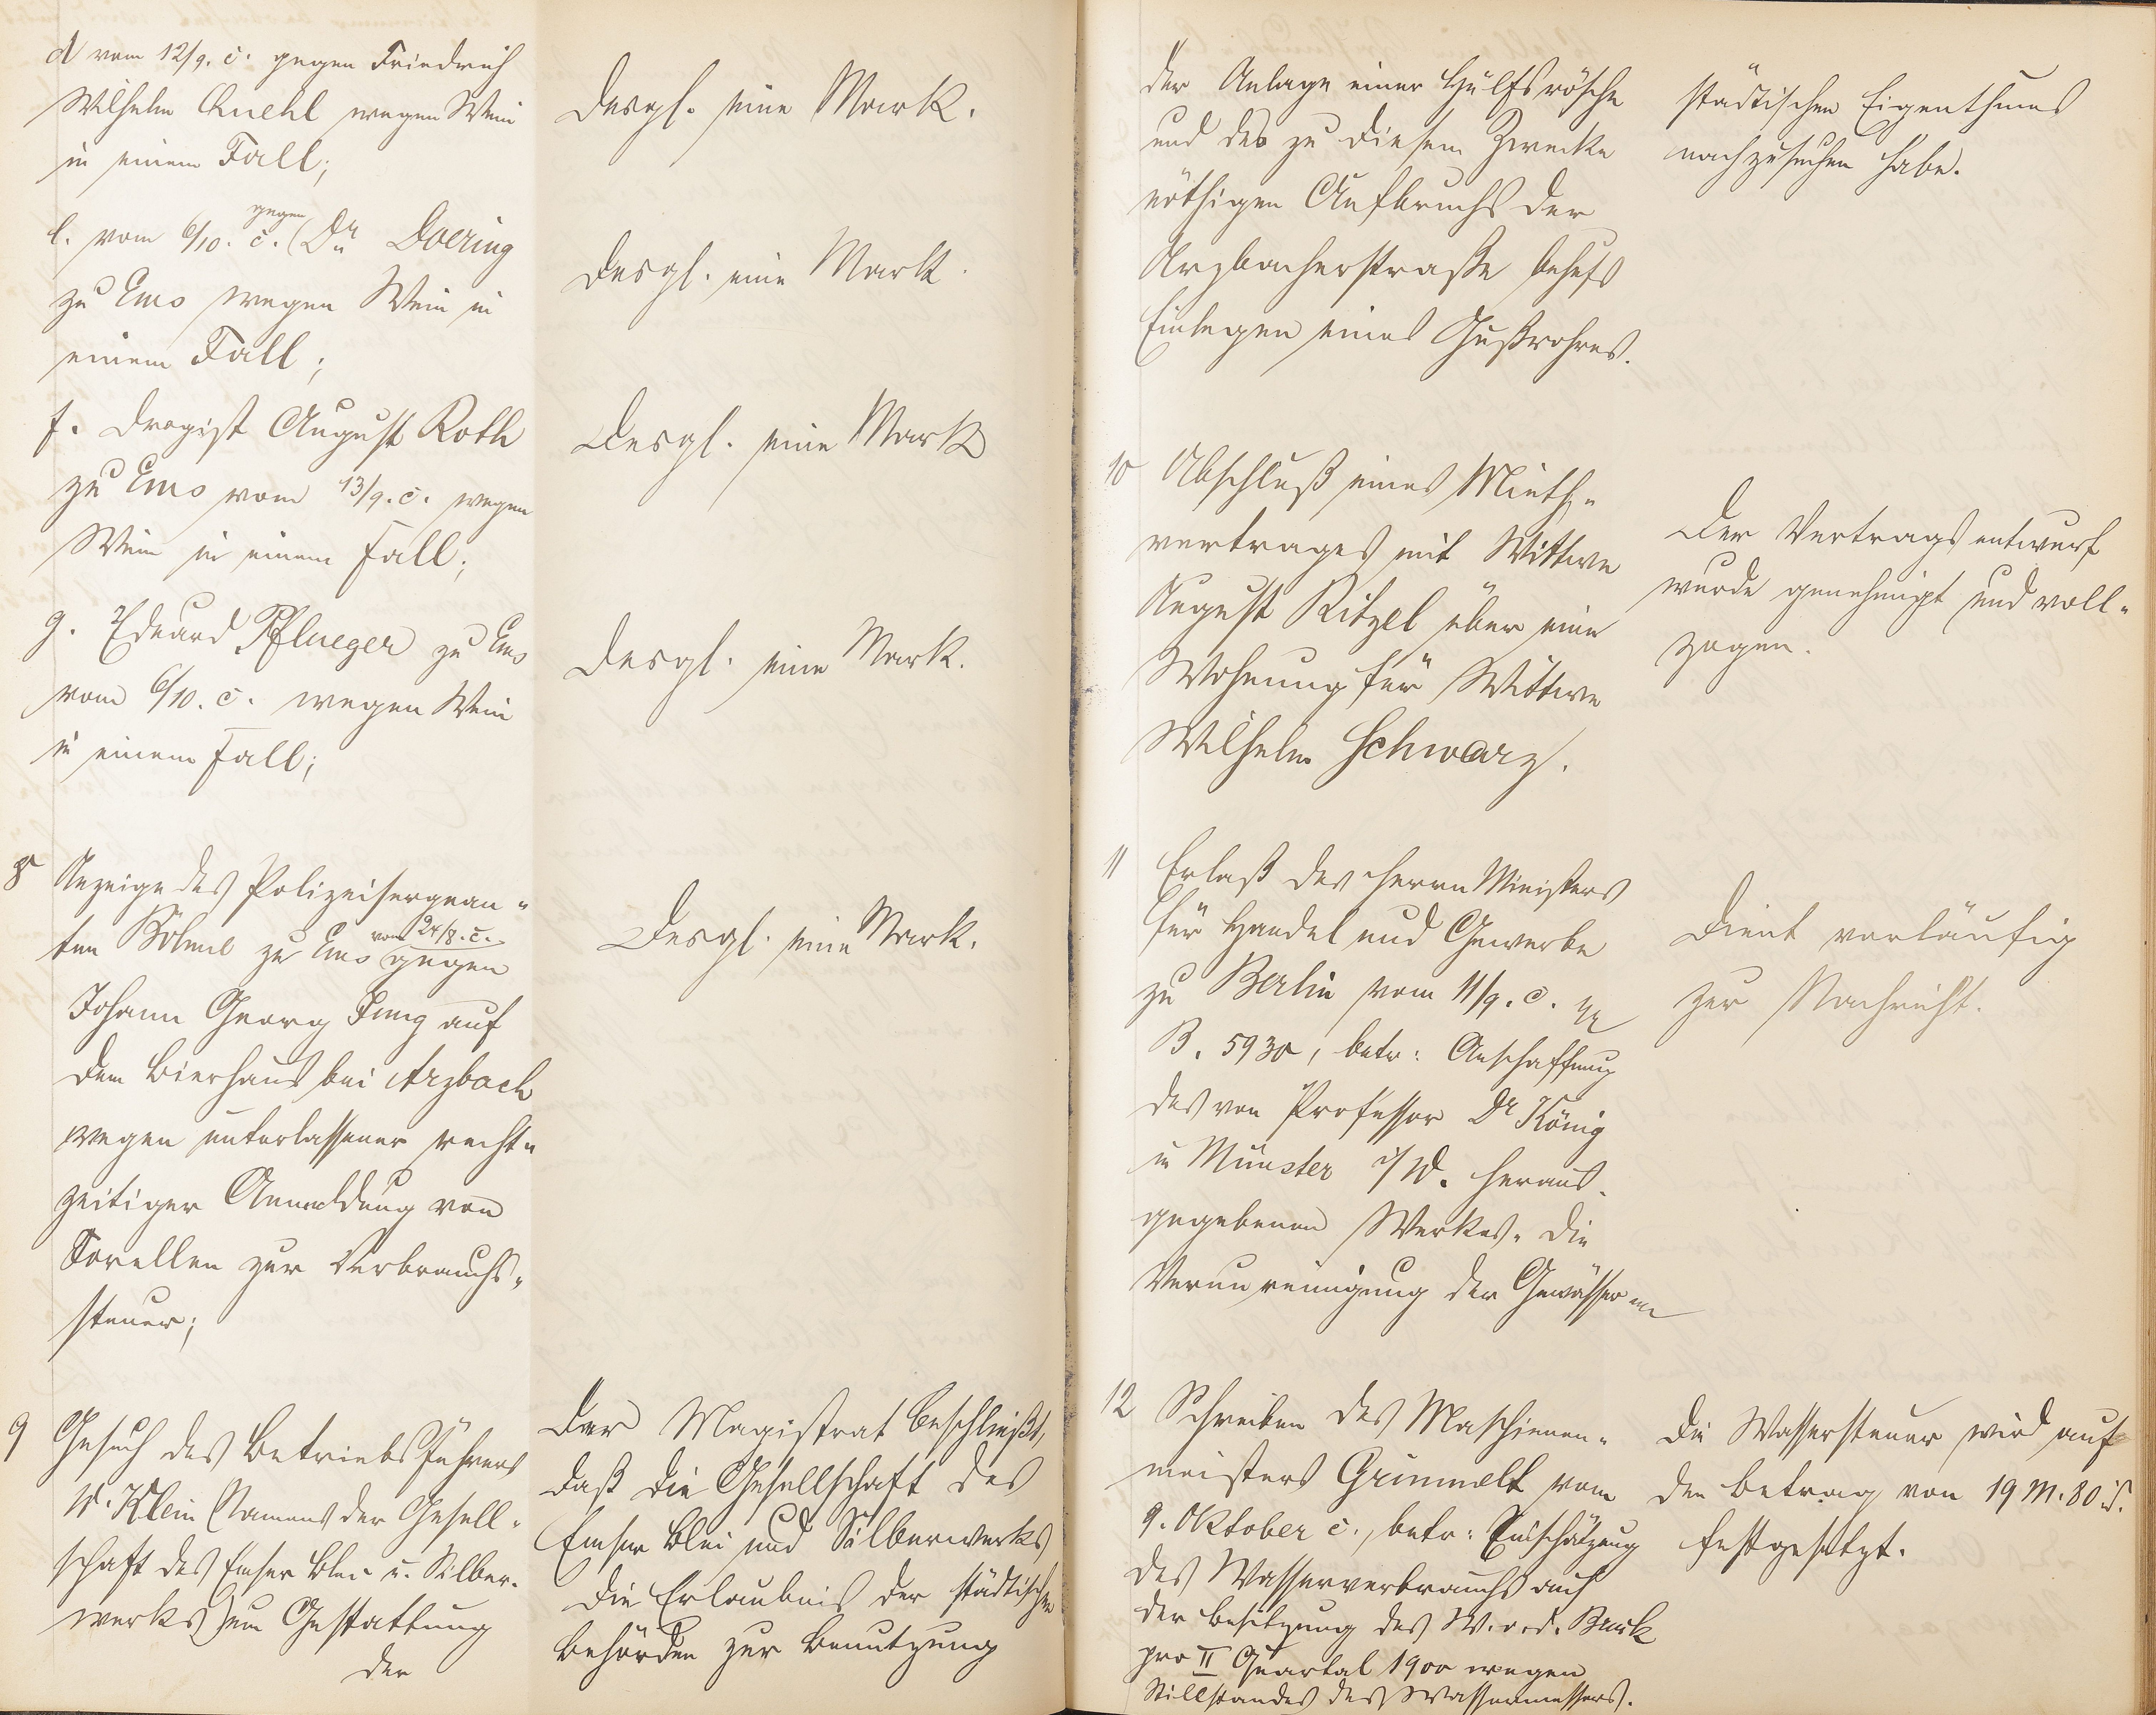 d vom 12/9. c. gegen Friedrich
Wilhelm Kuehl wegen Wein
in einem Fall;
Desgl. eine Mark.
e. vom 6/10. c. gegen (Dr Doering
zu Ems wegen Wein in
einem Fall;
Desgl. eine Mark.
f. Drogist August Roth
zu Ems vom 13/9. c. wegen
Wein in einem Fall;
Desgl. eine Mark
g. Eduard Pflueger zu Ems
vom 6/10. c. wegen Wein
in einem Fall;
Desgl. eine Mark.
8 Anzeige des Polizeisergean-
ten Böhme zu Ems vom 24/8. c. gegen
Johann Georg Jung auf
dem Bierhaus bei Arzbach
wegen unterlassener recht-
zeitiger Anmeldung von
Forellen zur Verbrauchs-
steuer;
Desgl. eine Mark.
9 Gesuch des Betriebsführers
W. Klein (Namens der Gesell-
schaft des Emser Blei u. Silber-
werks) um Gestattung
der
Der Magistrat beschließt,
daß die Gesellschaft des
Emser Blei und Silberwerks
die Erlaubnis der städtischen
Behörden zur Benutzung
der Anlage einer Hülfsrösche
und des zu diesem Zwecke
nöthigen Aufbruchs der
Arzbacherstraße behufs
Einlegen eines Gußrohres.
städtischen Eigenthums
nachzusuchen habe.
10 Abschluß eines Mieth-
vertrages mit Wittwe
August Ritzel über eine
Wohnung für Wittwe
Wilhelm Schwarz.
Der Vertragsentwurf
wurde genehmigt und voll-
zogen.
11 Erlaß des Herrn Ministers
für Handel und Gewerbe
zu Berlin vom 11/9. c.
B. 5930, betr: Anschaffung
des von Professor Dr König
in Münster i/W. heraus-
gegebenen Werkes "Die
Verunreinigung der Gewässer
Dient vorläufig
zur Nachricht.
12 Schreiben des Maschinen-
meisters Grimmelt vom
9. Oktober c., betr: Einschätzung
des Wasserverbrauchs auf
der Besitzung des W. v. d. Burk
pro II Quartal 1900 wegen
Stillstandes des Wassermessers.
Die Wassersteuer wird auf
den Betrag von 19 M. 80 d.
festgesetzt.